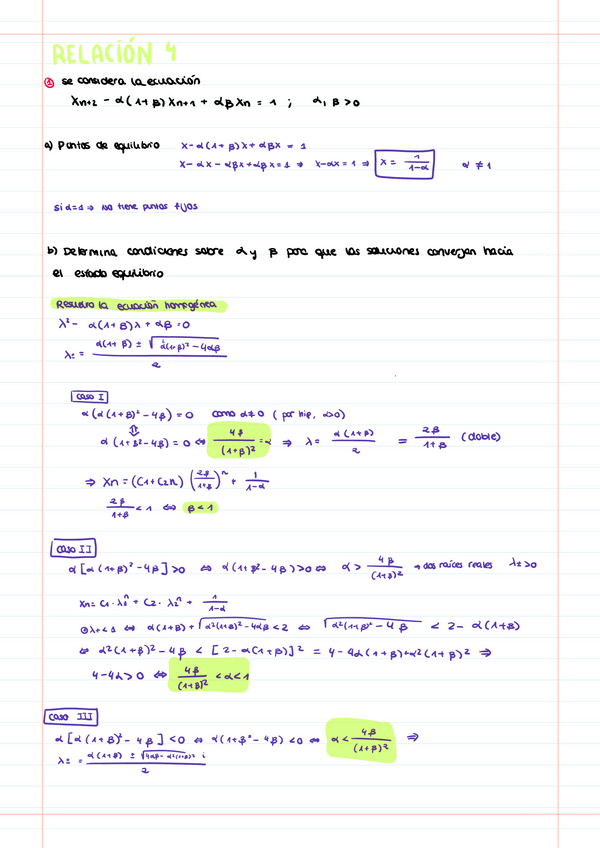 RELACIÓN 4
① se considera la ecuación
Xn+2 - α(1+β)Xn+1 + αβXn = 1 ; α, β > 0
a) Puntos de equilibrio X-α(1+β)X+αβX = 1
X-αX-αβX+αβX=1 ⇒ X-αX=1 ⇒ X = 1/(1-α) α ≠ 1
si α=1 ⇒ No tiene puntos fijos
b) Determina condiciones sobre α y β para que las soluciones converjan hacia
el estado equilibrio
Resuelvo la ecuación homogénea
λ² - α(1+β)λ + αβ = 0
λ± = (α(1+β) ± √(α²(1+β)² - 4αβ))/2
Caso I
α(α(1+β)² - 4β) = 0 como α≠0 (por hip, α>0)
⇕
α(1+β² - 4β) = 0 ⇔ 4β/(1+β)² = α ⇒ λ = α(1+β)/2 = 2β/(1+β) (doble)
⇒ Xn = (C1+C2n) (2β/(1+β))ⁿ + 1/(1-α)
2β/(1+β) < 1 ⇔ β < 1
Caso II
α[α(1+β)² - 4β] > 0 ⇔ α(1+β² - 4β) > 0 ⇔ α > 4β/(1+β)² → dos raíces reales λ± > 0
Xn = C1·λ1ⁿ + C2·λ2ⁿ + 1/(1-α)
λ+ < 1 ⇔ α(1+β) + √(α²(1+β)² - 4αβ) < 2 ⇔ √(α²(1+β)² - 4β) < 2 - α(1+β)
⇔ α²(1+β)² - 4β < [2-α(1+β)]² = 4 - 4α(1+β) + α²(1+β)² ⇒
4-4α > 0 ⇔ 4β/(1+β)² < α < 1
Caso III
α[α(1+β)² - 4β] < 0 ⇔ α(1+β² - 4β) < 0 ⇔ α < 4β/(1+β)² ⇒
λ± = (α(1+β) ± √(4αβ - α²(1+β)²) i)/2